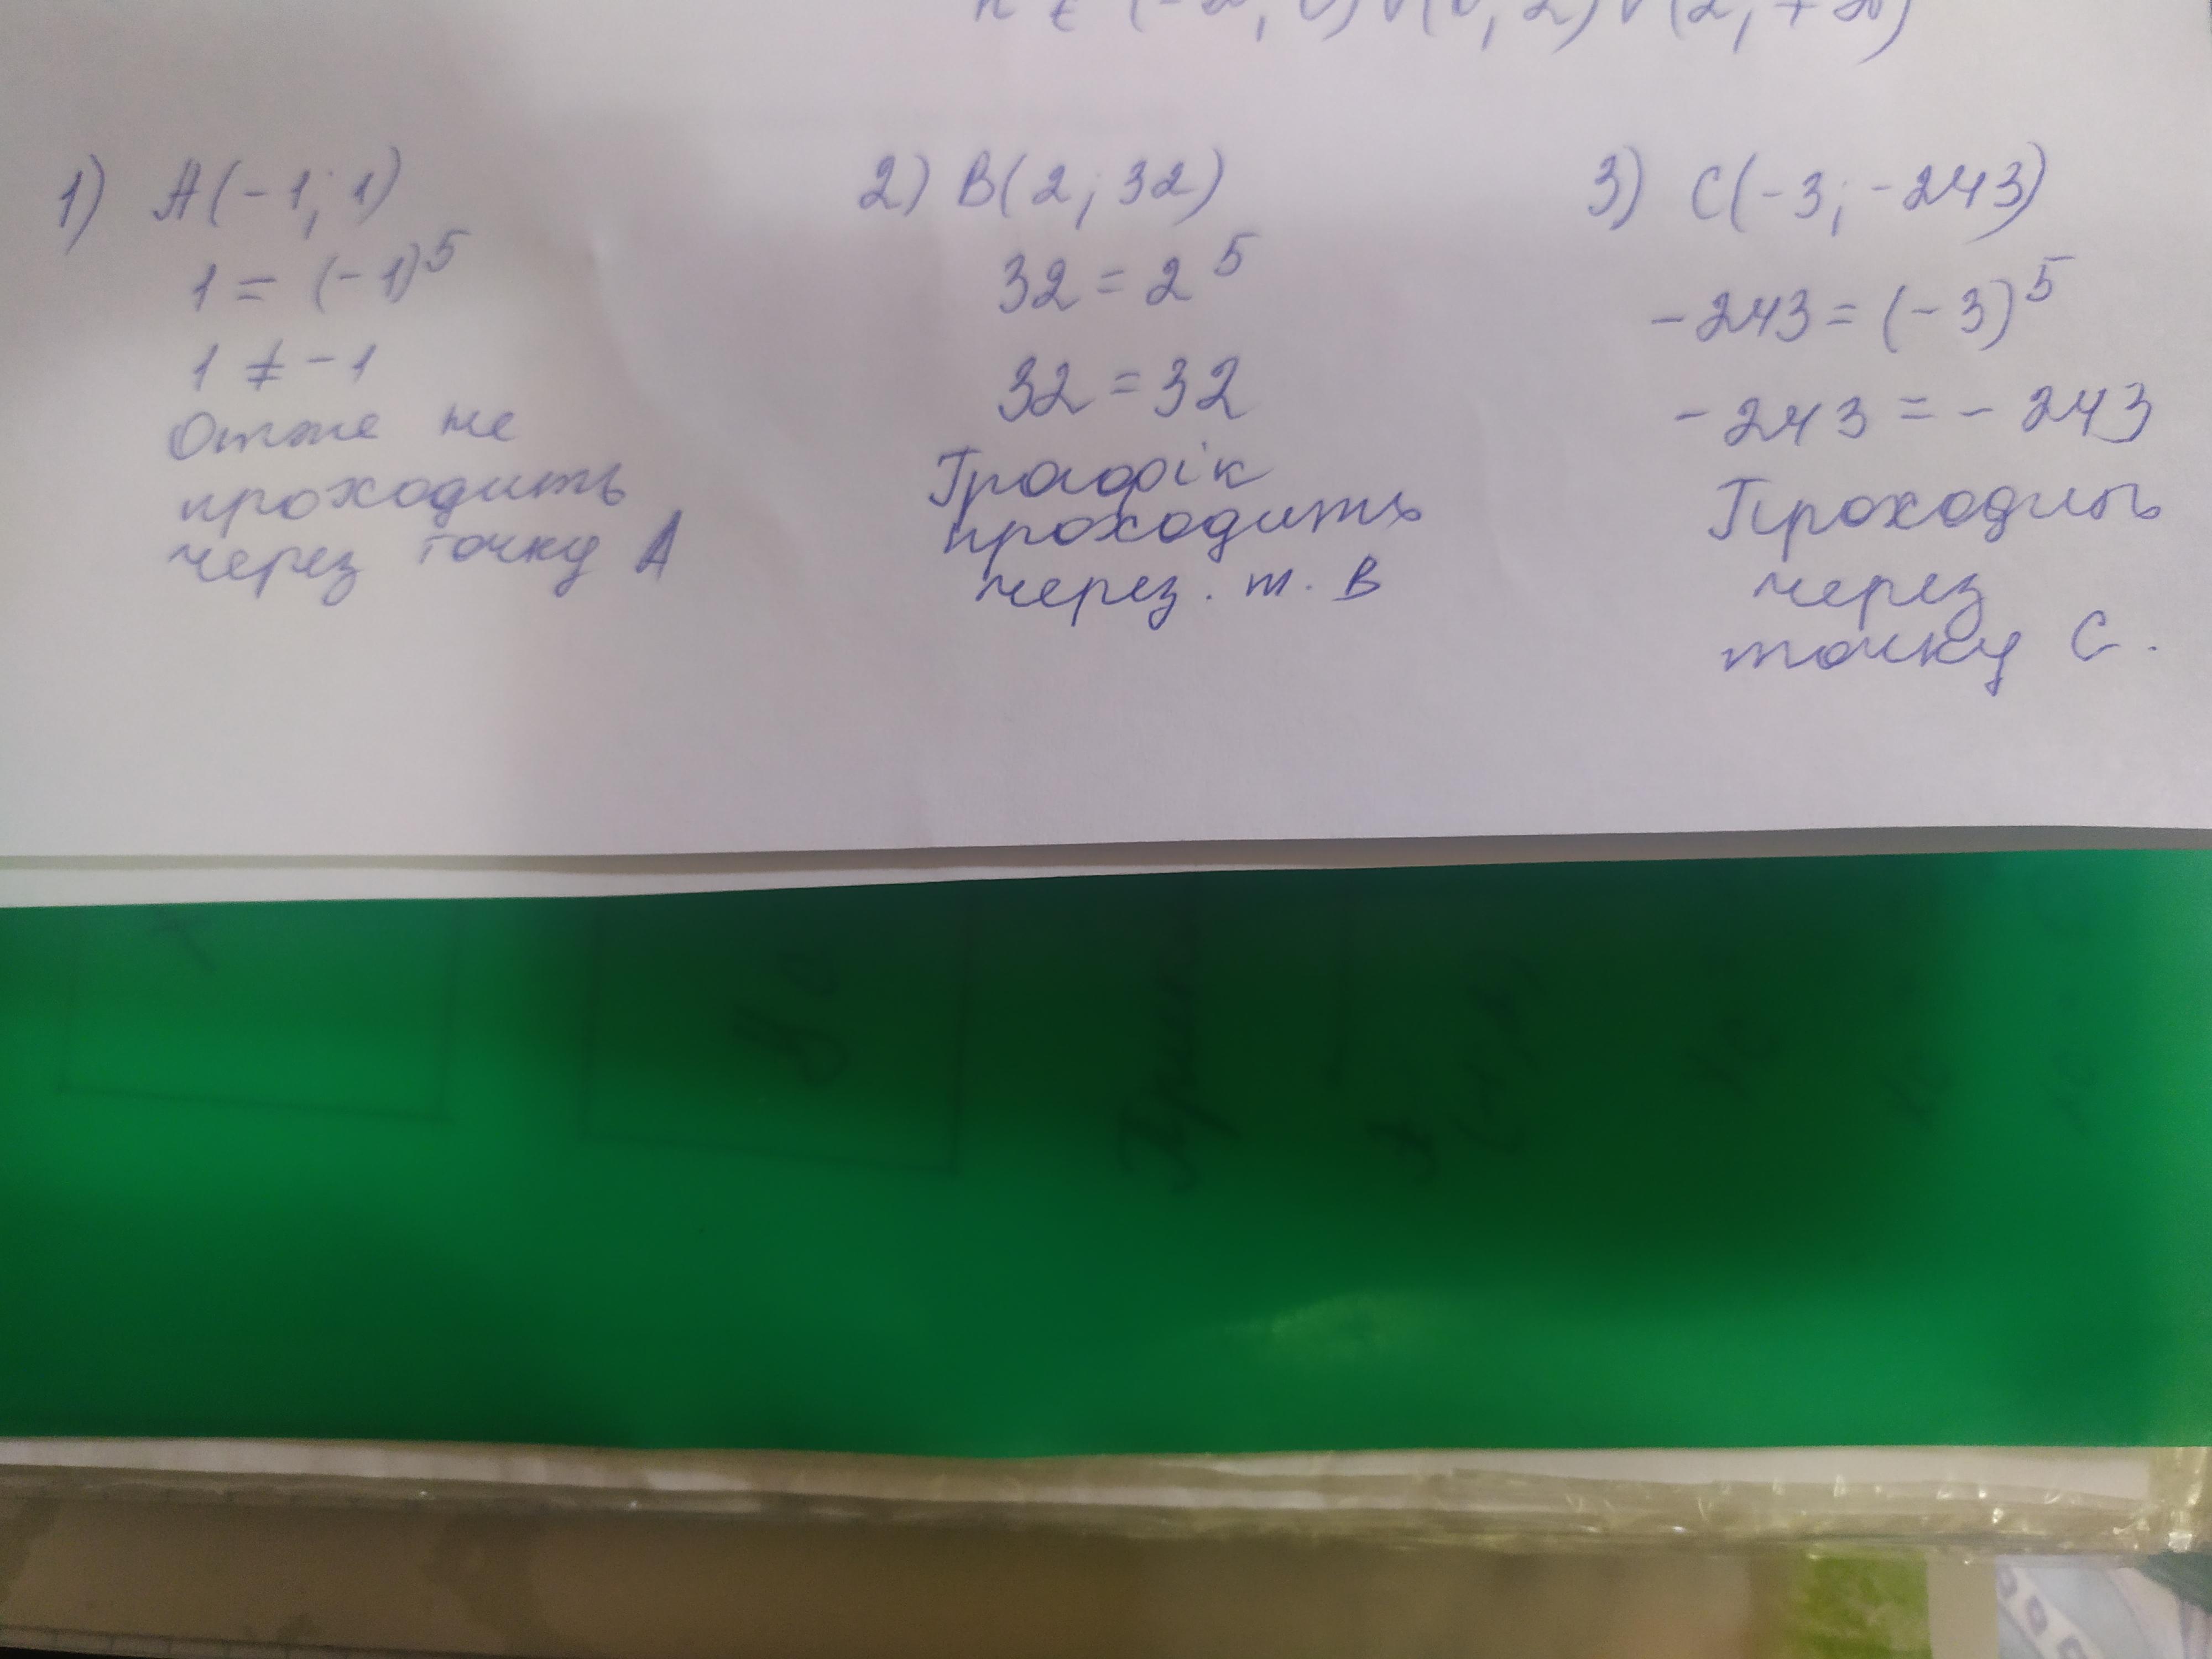 1) A(-1; 1)
1 = (-1)^5
1 ≠ -1
Отже не
проходить
через точку А
2) B(2; 32)
32 = 2^5
32 = 32
Графік
проходить
через. т. В
3) C(-3; -243)
-243 = (-3)^5
-243 = -243
Проходить
через
точку С.